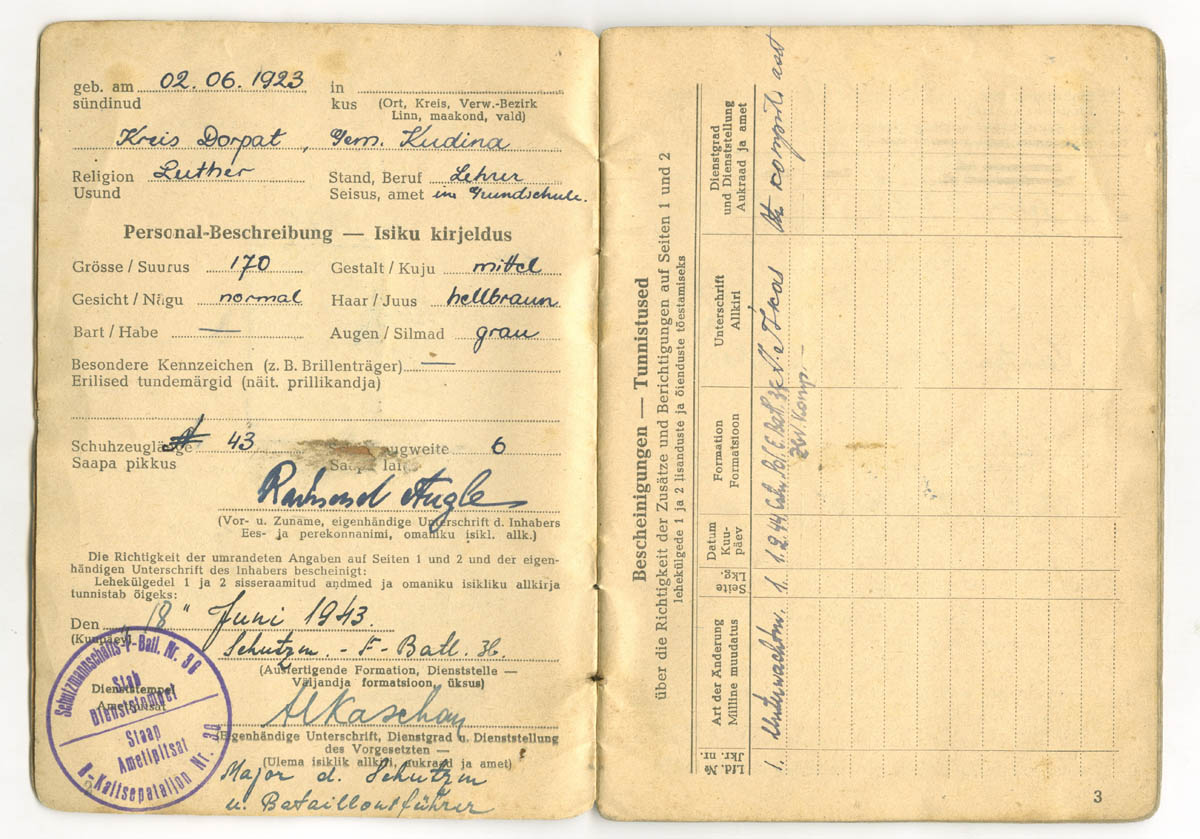 geb. am 02. 06. 1923 in
sündinud kus (Ort, Kreis, Verw.-Bezirk
Linn, maakond, vald)
Kreis Dorpat, Gem. Kudina
Religion Luther Stand, Beruf Lehrer
Usund Seisus, amet in Grundschule.
Personal-Beschreibung — Isiku kirjeldus
Grösse / Suurus 170 Gestalt / Kuju mittel
Gesicht / Nägu normal Haar / Juus hellbraun
Bart / Habe — Augen / Silmad grau
Besondere Kennzeichen (z. B. Brillenträger) —
Erilised tundemärgid (näit. prillikandja)
Schuhzeuglänge 43 ugweite 6
Saapa pikkus Saapa lai
(Vor- u. Zuname, eigenhändige Unterschrift d. Inhabers
Ees- ja perekonnanimi, omaniku isikl. allk.)
Die Richtigkeit der umrandeten Angaben auf Seiten 1 und 2 und der eigen-
händigen Unterschrift des Inhabers bescheinigt:
Lehekülgedel 1 ja 2 sisseraamitud andmed ja omaniku isikliku allkirja
tunnistab õigeks:
Den 18 " Juni 1943.
(Kuupäev)
Schutzm. - F - Batl. 36.
(Ausfertigende Formation, Dienststelle —
Väljandja formatsioon, üksus)
Dienststempel
Ametipitsat
Schutzmannschafts-F-Batl. Nr. 36
Stab
Dienststempel
Staap
Ametipitsat
Kaitsepataljon Nr. 36
(Eigenhändige Unterschrift, Dienstgrad u. Dienststellung
des Vorgesetzten —
(Ulema isiklik allkiri, aukraad ja amet)
Major d. Schutzm
u. Bataillonsführer
2
Bescheinigungen — Tunnistused
über die Richtigkeit der Zusätze und Berichtigungen auf Seiten 1 und 2
lehekülgede 1 ja 2 lisanduste ja õienduste tõestamiseks
Lfd. № Jkr. nr.
Art der Änderung Milline muudatus
Seite Lkg.
Datum Kuu- päev
Formation Formatsioon
Unterschrift Allkiri
Dienstgrad und Dienststellung Aukraad ja amet
1. Unterwachtm. 1. 1.2.44
Komp. —
3